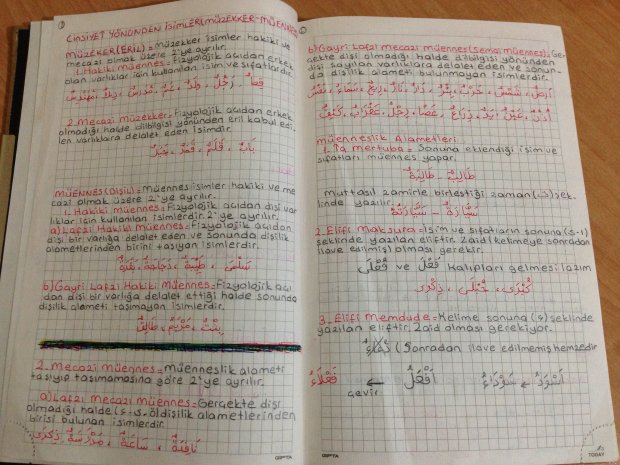 CİNSİYET YÖNÜNDEN İSİMLER(MÜZEKKER-MÜENNES)
MÜZEKER(ERİL)=Müzekker isimler hakiki ve
mecazi olmak üzere 2'ye ayrılır.
1.Hakiki Müennes=Fizyolojik açıdan erkek
olan varlıklar için kullanılan isim ve sıfatlardır.
رَجُلٌ، وَلَدٌ، مُدَرِّسٌ، مُهَنْدِسٌ
2.Mecazi Müzekker=Fizyolojik açıdan erkek
olmadığı halde dilbilgisi yönünden eril kabul edi-
len varlıklara delalet eden isimdir.
بَابٌ، قَلَمٌ، قَمَرٌ، جَبَلٌ
MÜENNES(DİŞİL)=Müennes isimler hakiki ve me
cazi olmak üzere 2'ye ayrılır.
1.Hakiki Müennes=Fizyolojik açıdan dişi var
lıklar için kullanılan isimlerdir. 2'ye ayrılır.
a)Lafzi Hakiki Müennes=Fizyolojik açıdan
dişi bir varlığa delalet eden ve sonunda dişilik
alametlerinden birini taşıyan isimlerdir.
سَلْمَى، طَبِيبَةٌ، دَجَاجَةٌ، بَقَرَةٌ
b)Gayri Lafzi Hakiki Müennes=Fizyolojik açı
dan dişi bir varlığa delalet ettiği halde sonunda
dişilik alameti taşımayan isimlerdir.
بِنْتٌ، مَرْيَمُ، طَالِقٌ
2.Mecazi Müennes=Müenneslik alameti
taşıyıp taşımamasına göre 2'ye ayrılır.
a)Lafzi Mecazi Müennes=Gerçekte dişi
olmadığı halde dişilik alametlerinden
birisi bulunan isimlerdir.
سَاعَةٌ، مَدْرَسَةٌ، ذِكْرَى
GIPTA
b)Gayri Lafzi mecazi müennes(Semai Müennes)=Ger
çekte dişi olmadığı halde dilbilgisi yönünden
dişi sayılan varlıklara delalet eden ve sonun-
da dişilik alameti bulunmayan isimlerdir.
أَرْضٌ، شَمْسٌ، حَرْبٌ، بِئْرٌ، دَارٌ، نَارٌ، رِيحٌ، سَمَاءٌ، نَفْسٌ
أُذُنٌ، عَيْنٌ، يَدٌ، ذِرَاعٌ، عَصًا، رِجْلٌ، عَقْرَبٌ، كَتِفٌ
müenneslik Alametleri
1.Ta mertuba= Sonuna eklendiği isim ve
sıfatları müennes yapar.
طَالِبٌ - طَالِبَةٌ
Muttasıl zamirle birleştiği zaman(ت)şek
linde yazılır.
سَيَّارَةٌ
2.Elifi Maksura=İsim ve sıfatların sonuna(ى-ا)
şeklinde yazılan eliftir. Zaid(kelimeye sonradan
ilave edilmiş) olması gerekir.
فُعْلَى ve فَعْلَى kalıpları gelmesi lazım
كُبْرَى، حُبْلَى، ذِكْرَى
3.Elifi Memdude=Kelime sonuna(اء)şeklinde
yazılan eliftir. Zaid olması gerekiyor.
(Sonradan ilave edilmemiş hemzedir
أَسْوَدُ سَوْدَاءُ
أَفْعَلُ فَعْلَاءُ
çevir
GIPTA
TODAY